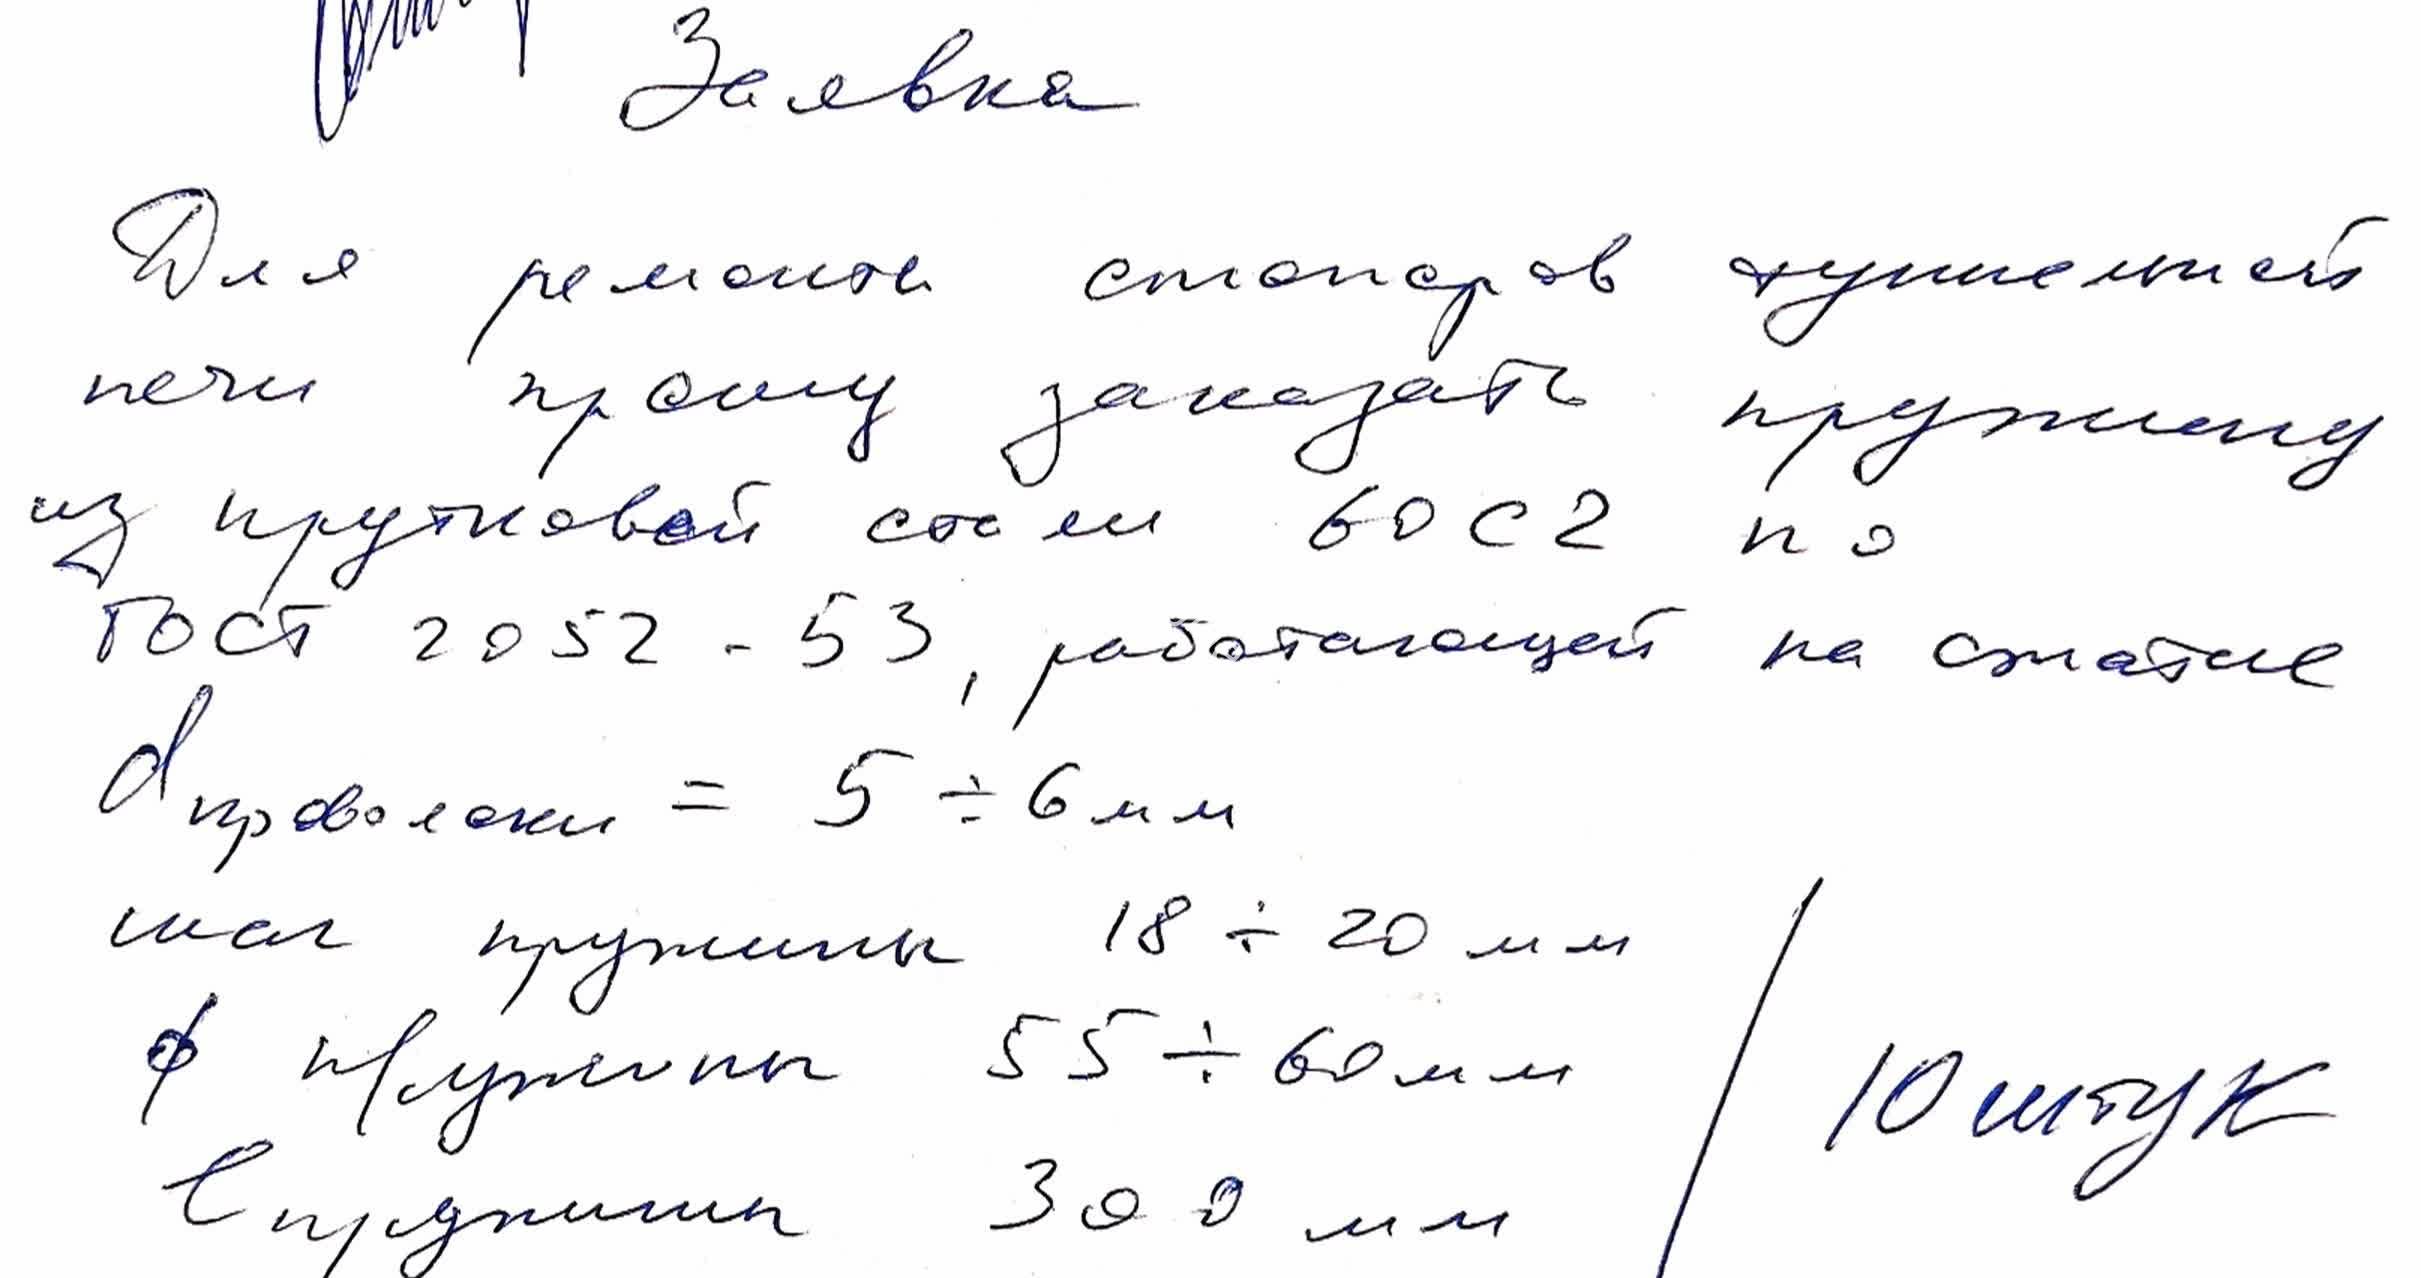 Заявка
Для ремонта стопоров туннельной
печи прошу заказать пружину
из прутковой стали 60С2 по
ГОСТ 2052-53, работающей на сжатие
d проволоки = 5 ÷ 6 мм
шаг пружины 18 ÷ 20 мм
ϕ пружины 55 ÷ 60 мм
ℓ пружины 300 мм
10 штук